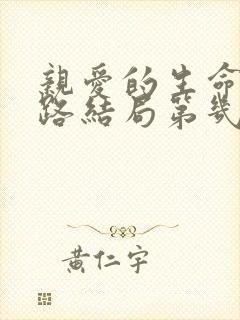 親愛的生命
路結局第幾
黃仁宇